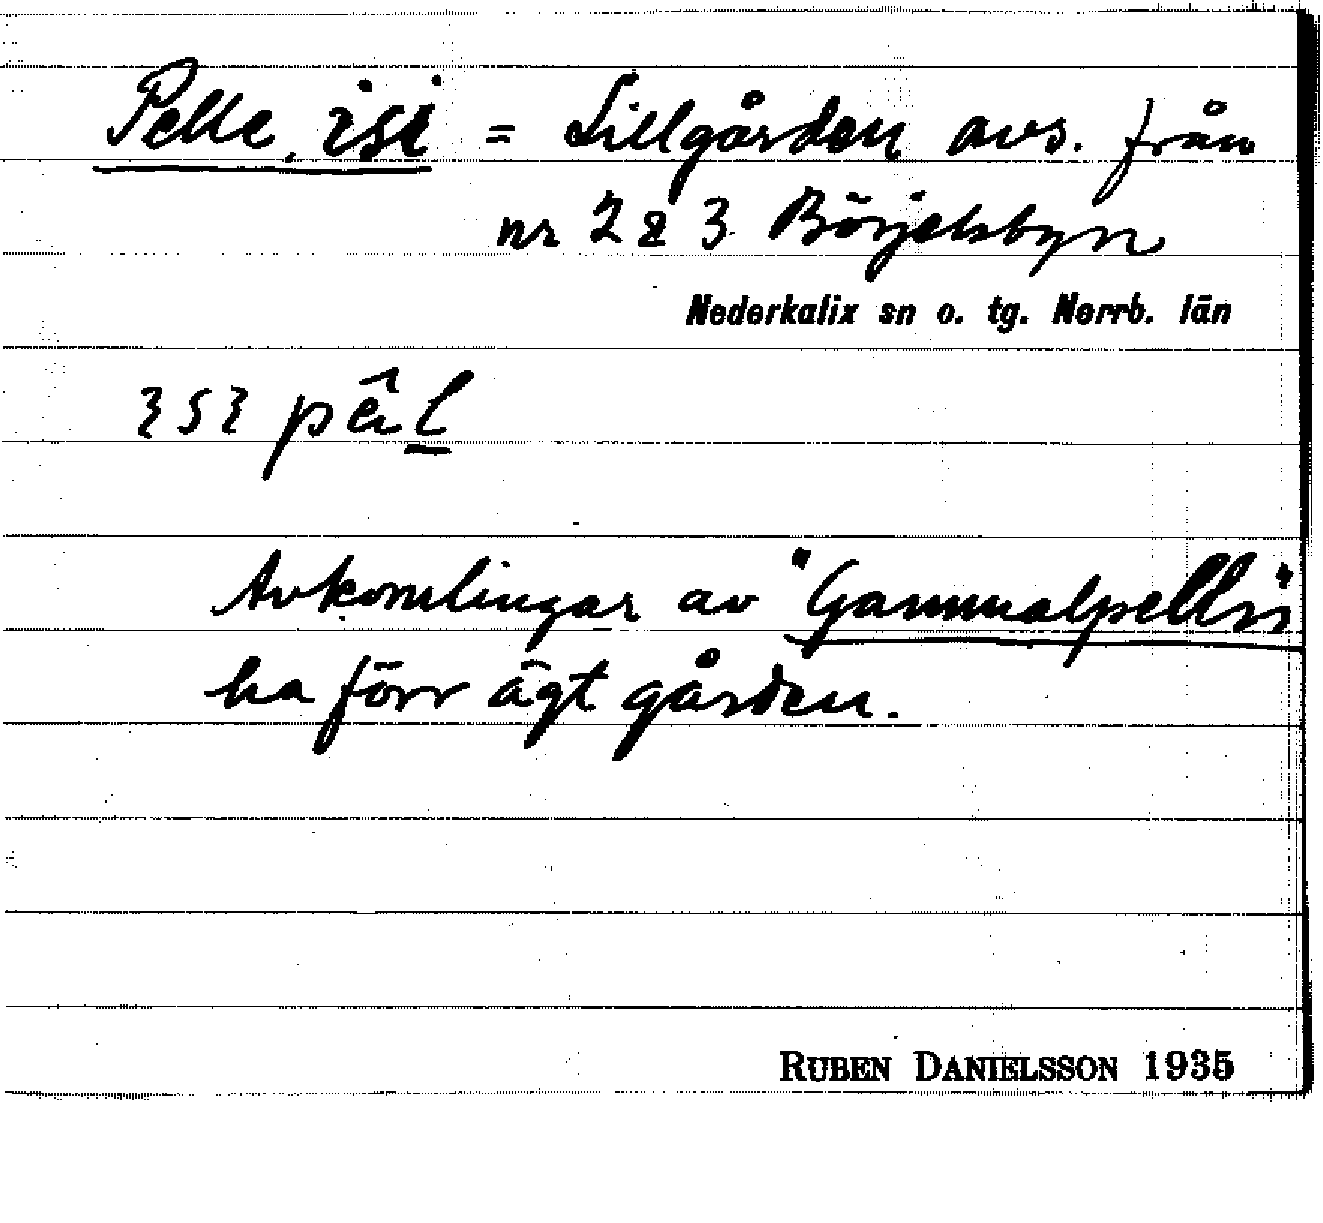 Pelle, isi = Lillgården avs. från
nr 2 & 3 Börjelsbyn
Nederkalix sn o. tg. Norrb. län
Avkomlingar av "Gammalpelln"
ha förr ägt gården.
RUBEN DANIELSSON 1935